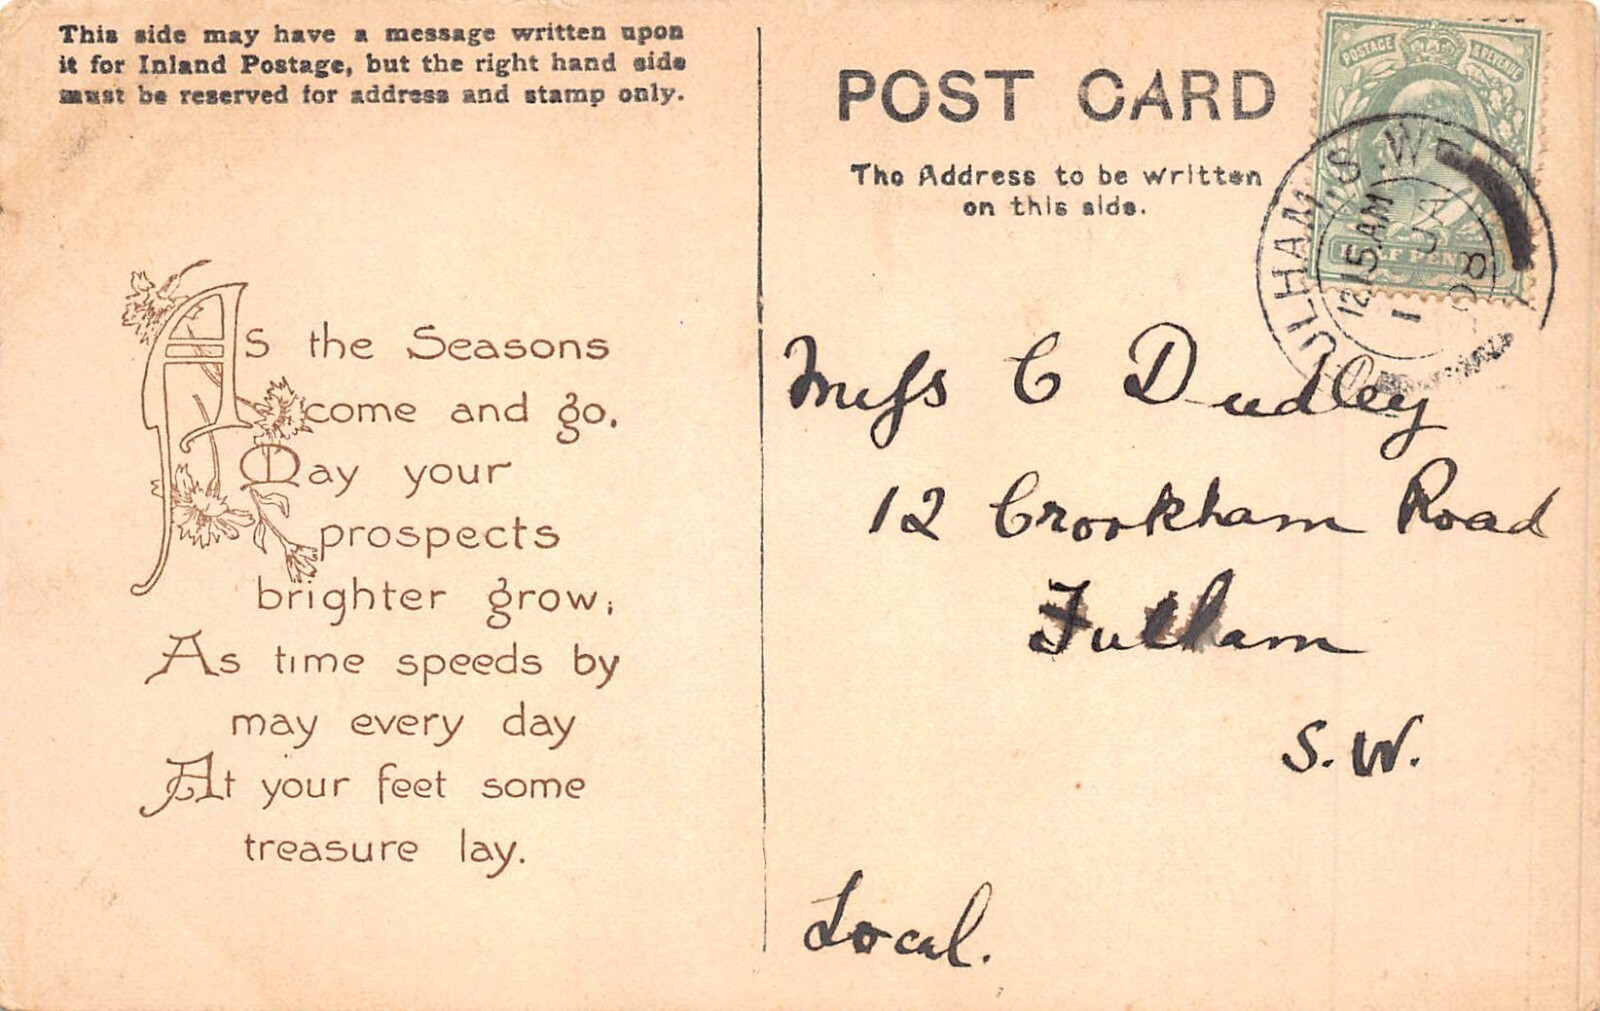 This side may have a message written upon
it for Inland Postage, but the right hand side
must be reserved for address and stamp only.
As the Seasons
come and go,
May your
prospects
brighter grow;
As time speeds by
may every day
At your feet some
treasure lay.
POST CARD
The Address to be written
on this side.
POSTAGE & REVENUE
HALF PENNY
FULHAM. S.W
12.15 AM
1 JA
08
Miss C Dudley
12 Crookham Road
Fulham
S.W.
Local.